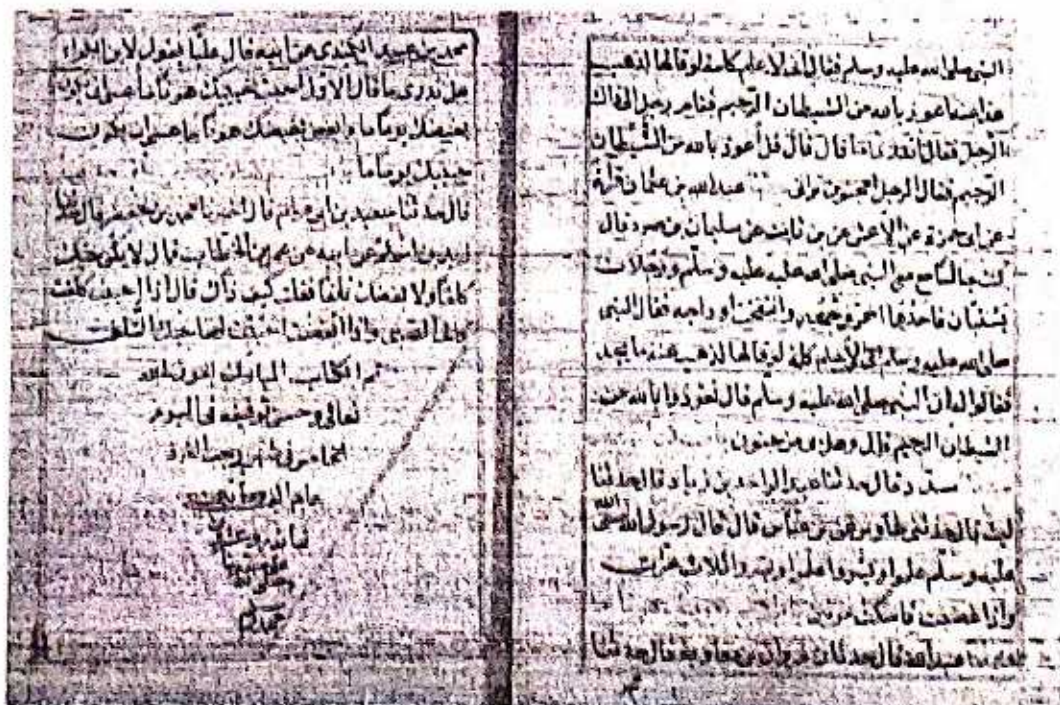 النبي صلى الله عليه وسلم فقال اني لاعلم كلمة لو قالها لذهب
هذا عنه اعوذ بالله من الشيطان الرجيم فقام رجل الى ذاك
الرجل فقال اتدري ما قال قال قل اعوذ بالله من الشيطان
الرجيم فقال الرجل امجنونا تراني عبد الله بن عثمان قراءة
عن ابي حمزة عن الاعمش عن بن ثابت عن سليمان بن صرد قال
كنت جالسا مع النبي صلى الله عليه وسلم ورجلان
يستبان فاحدهما احمر وجهه وانتفخت اوداجه فقال النبي
صلى الله عليه وسلم اني لأعلم كلمة لو قالها لذهب عنه ما يجد
فقالوا له ان النبي صلى الله عليه وسلم قال تعوذ بالله من
الشيطان الرجيم قال وهل بي من جنون
مسدد قال حدثنا عبد الواحد بن زياد قال حدثنا
ليث قال حدثني طاوس عن بن عباس قال قال رسول الله صلى الله
عليه وسلم علموا ويسروا علموا ويسروا ثلاث مرات
واذا غضبت فاسكت مرتين
عبد الله قال حدثنا مروان بن معاوية قال حدثنا
محمد بن عبيد الكندي عن ابيه قال عليا يقول لابن الكواء
هل تدري ما قال الاول احبب حبيبك هونا ما عسى ان يكون
بغيضك يوما ما وابغض بغيضك هونا ما عسى ان يكون
حبيبك يوما ما
قال حدثنا سعيد بن ابي مريم قال اخبرنا محمد بن جعفر قال حدثنا
زيد بن اسلم عن ابيه عن عمر بن الخطاب قال لا يكن حبك
كلفا ولا بغضك تلفا فقلت كيف ذاك قال اذا احببت كلفت
كلف الصبي واذا ابغضت احببت لصاحبك التلف
تم الكتاب المبارك بعون الله
تعالى وحسن توفيقه في اليوم
شهر رجب الفرد
عام
وصلى الله
محمد